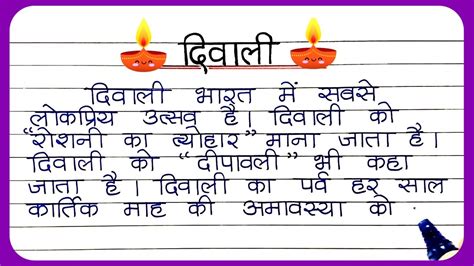 दिवाली
दिवाली भारत में सबसे
लोकप्रिय उत्सव है। दिवाली को
“रोशनी का त्योहार” माना जाता है।
दिवाली को “दीपावली” भी कहा
जाता है। दिवाली का पर्व हर साल
कार्तिक माह की अमावस्या को